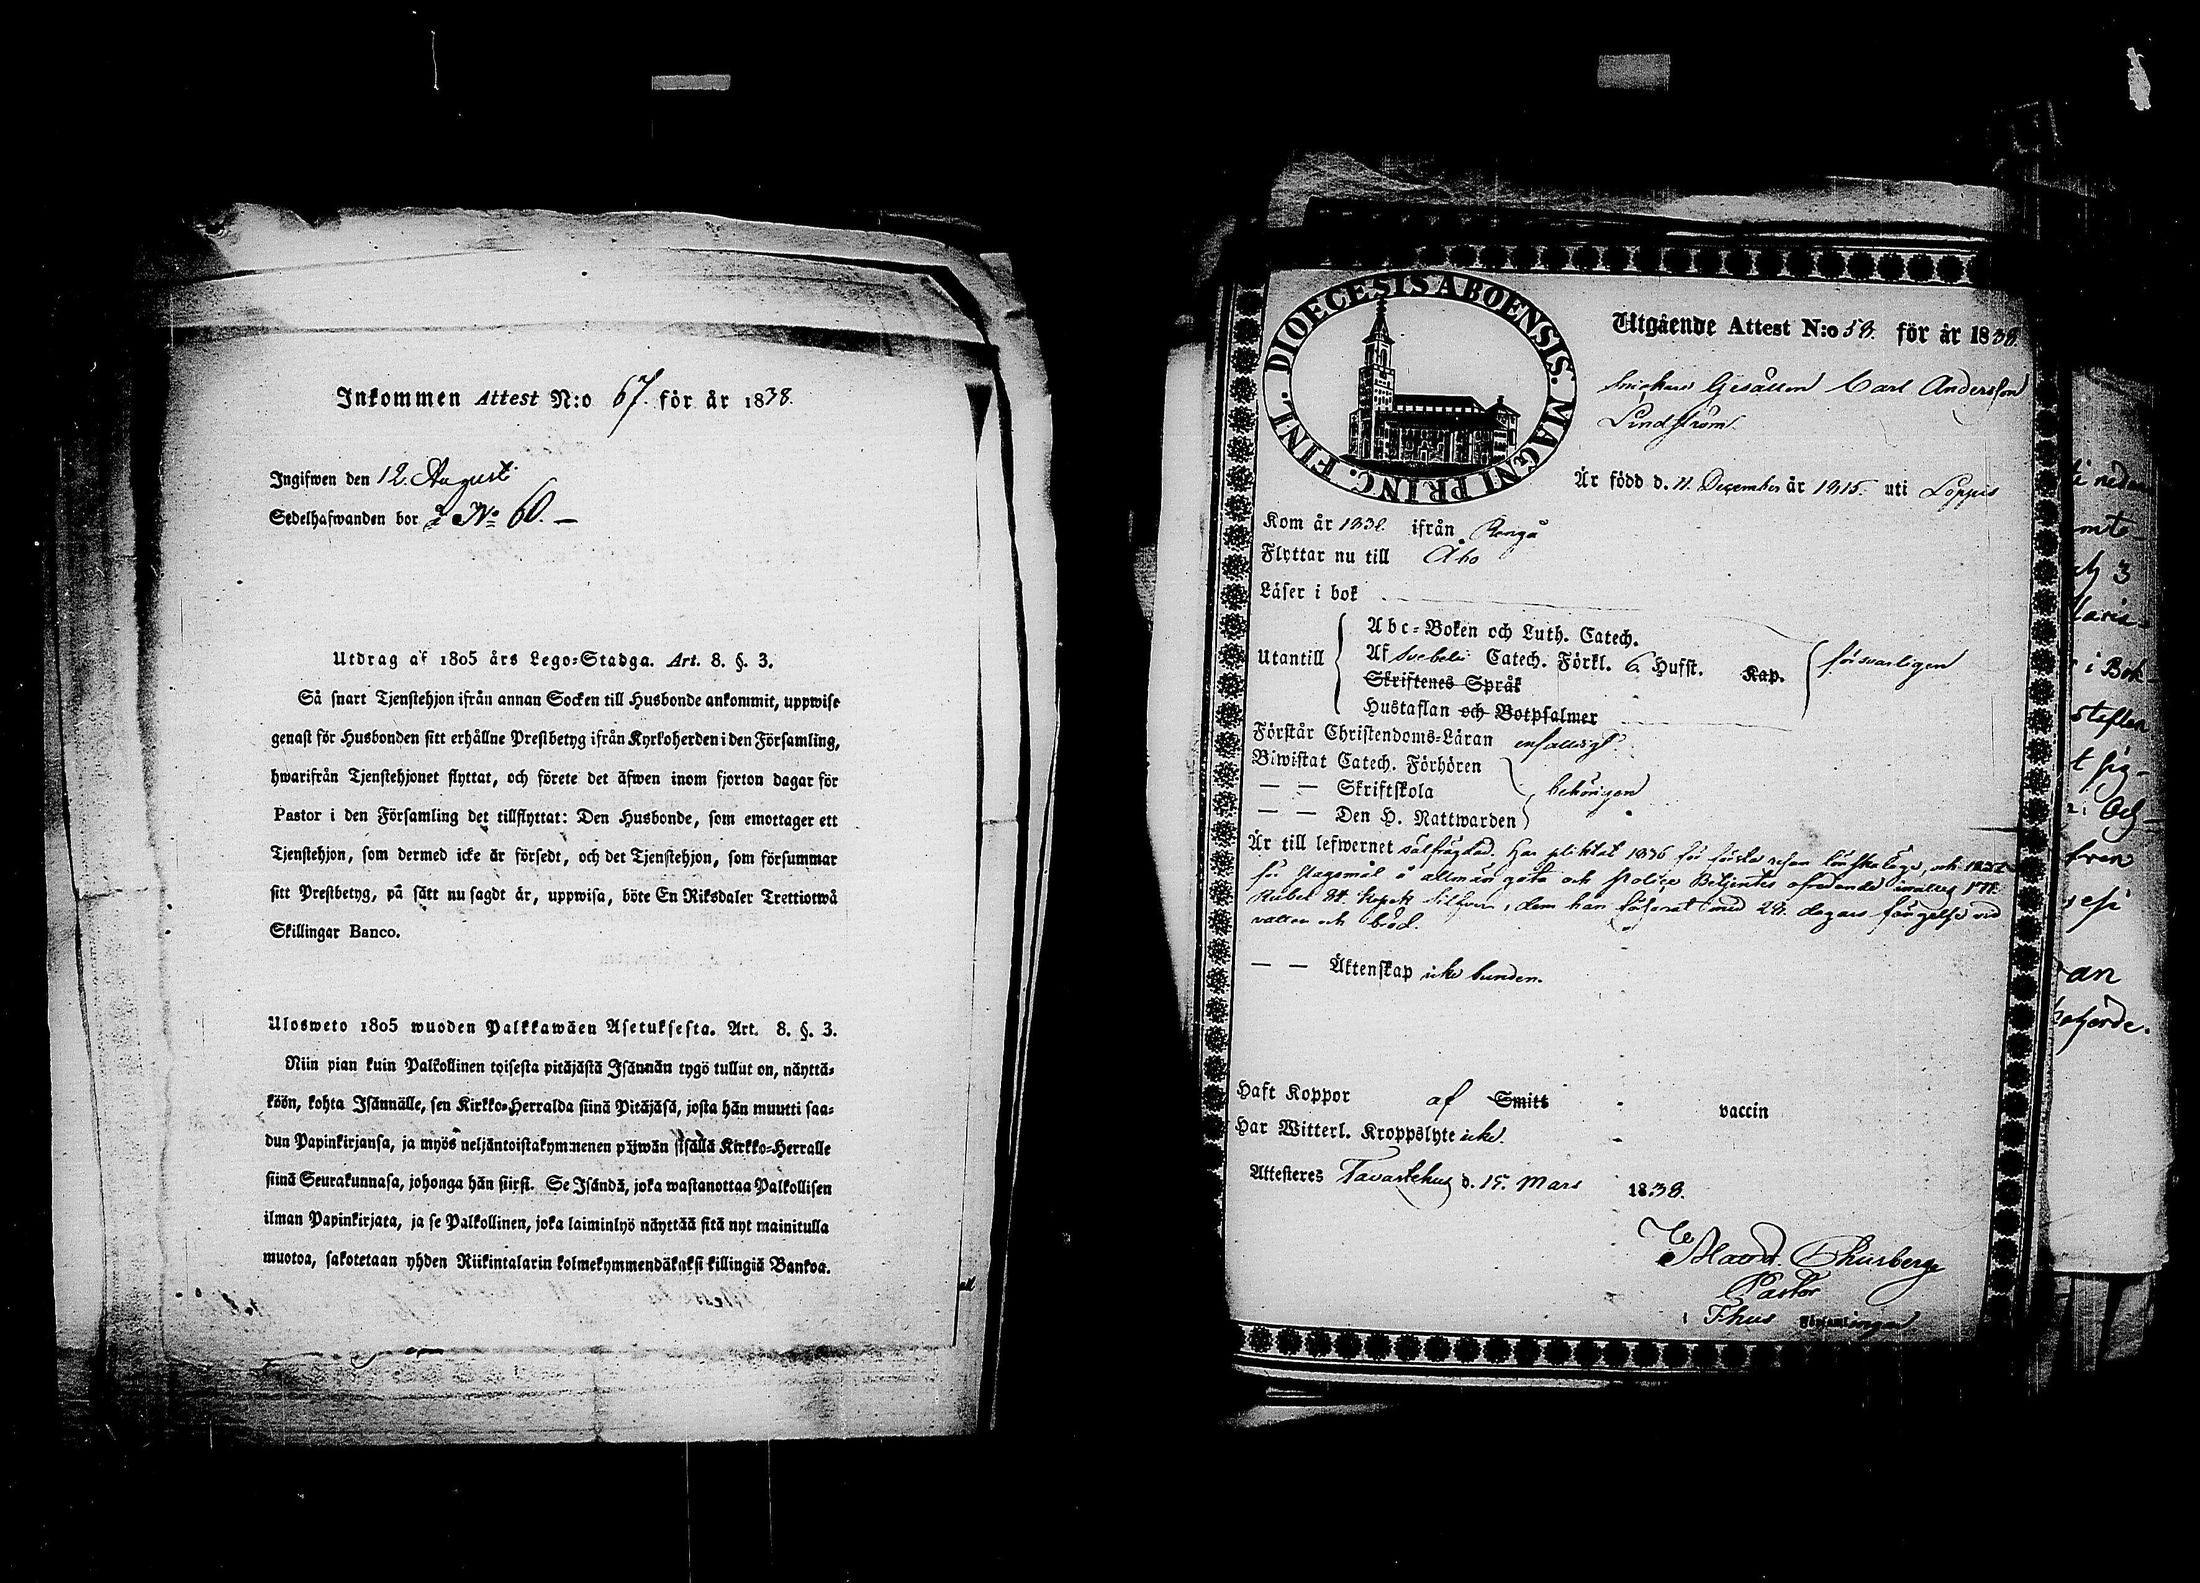 Inkommen Attest N:o 67. för år 1838.
Ingifwen den 12. August
Sedelhafwanden bor å No 60. —
Utdrag af 1805 års Lego-Stadga. Art. 8. §. 3.
Så snart Tjenstehjon ifrån annan Socken till Husbonde ankommit, uppwise
genast för Husbonden sitt erhållne Prestbetyg ifrån Kyrkoherden i den Församling,
hwarifrån Tjenstehjonet flyttat, och förete det äfwen inom fjorton dagar för
Pastor i den Församling det tillflyttat: Den Husbonde, som emottager ett
Tjenstehjon, som dermed icke är försedt, och det Tjenstehjon, som försummar
sitt Prestbetyg, på sätt nu sagdt är, uppwisa, böte En Riksdaler Trettiotwå
Skillingar Banco.
Ulosweto 1805 wuoden Palkkawäen Asetuksesta. Art. 8. §. 3.
Niin pian kuin Palkollinen toisesta pitäjästä Isännän tygö tullut on, näyttä-
köön, kohta Isännälle, sen Kirkko-Herralda siinä Pitäjäsä, josta hän muutti saa-
dun Papinkirjansa, ja myös neljäntoistakymmenen päiwän sisällä Kirkko-Herralle
siinä Seurakunnasa, johonga hän siirsi. Se Isändä, joka wastanottaa Palkollisen
ilman Papinkirjata, ja se Palkollinen, joka laiminlyö näyttää sitä nyt mainitulla
muotoa, sakotetaan yhden Riikintalarin kolmekymmendäkaksi killingiä Bankoa.
DIOECESIS ABOENSIS. MAGNI PRINC. FINL.
Utgående Attest N:o 58. för år 1838.
Gesällen Carl Andersson
Lindström.
Är född d. 11. December år 1815. uti Loppis
Kom år 1832. ifrån Rengå
Flyttar nu till Åbo
Läser i bok
Utantill
Abc-Boken och Luth. Catech.
Af Svebelii Catech. Förkl. 6 Hufst. Kap.
försvarligen
Skriftenes Språk
Hustaflan och Botpsalmer
Förstår Christendoms-Läran enfaldigt.
Biwistat Catech. Förhören
— — Skriftskola behörigen
— — Den H. Nattwarden
Är till lefwernet sälfrägdad. Har pliktat 1836 för första resan lönskaläge, och
för slagsmål å allmän gata och Police Betjentes ofredande
Rubel 84. Kopek Silfver, dem han försonat med 28. dagars fängelse vid
vatten och bröd.
— — Äktenskap icke bunden.
Haft Koppor af Smitt vaccin
Har Witterl. Kroppslyte icke.
Attesteres Tavastehus d. 15. Mars 1838.
Thurberg
Pastor
i Thus Församlingen